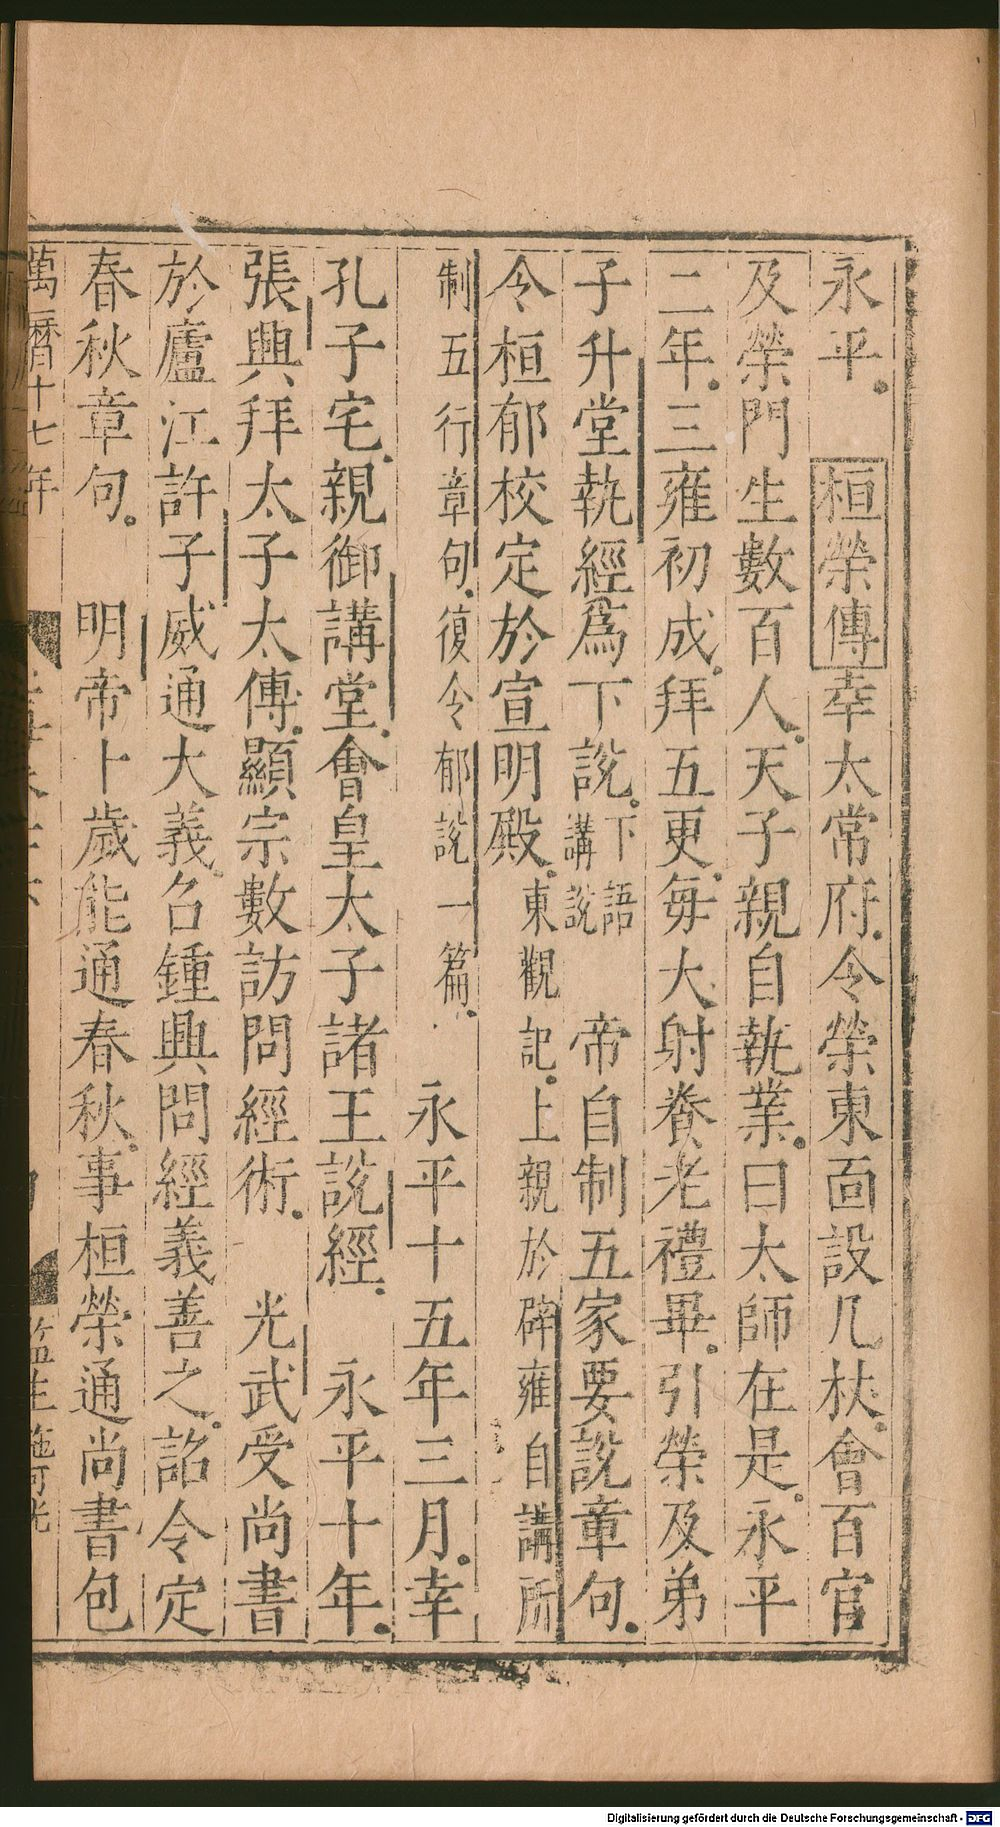 永平。　桓榮傳幸太常府。令榮東面設几杖。會百官
及榮門生數百人。天子親自執業。曰太師在是。永平
二年。三雍初成。拜五更。每大射養老禮畢。引榮及弟
子升堂執經爲下說。下語講說　帝自制五家要說章句。
令桓郁校定於宣明殿。東觀記。上親於辟雍自講所
制五行章句。復令郁說一篇。　永平十五年三月。幸
孔子宅。親御講堂。會皇太子諸王說經。　永平十年。
張興拜太子太傅。顯宗數訪問經術。　光武受尚書
於廬江許子威通大義。召鍾興問經義善之。詔令定
春秋章句。　明帝十歲能通春秋。事桓榮通尚書包
萬曆十七年
監生施可光
Digitalisierung gefördert durch die Deutsche Forschungsgemeinschaft - DFG